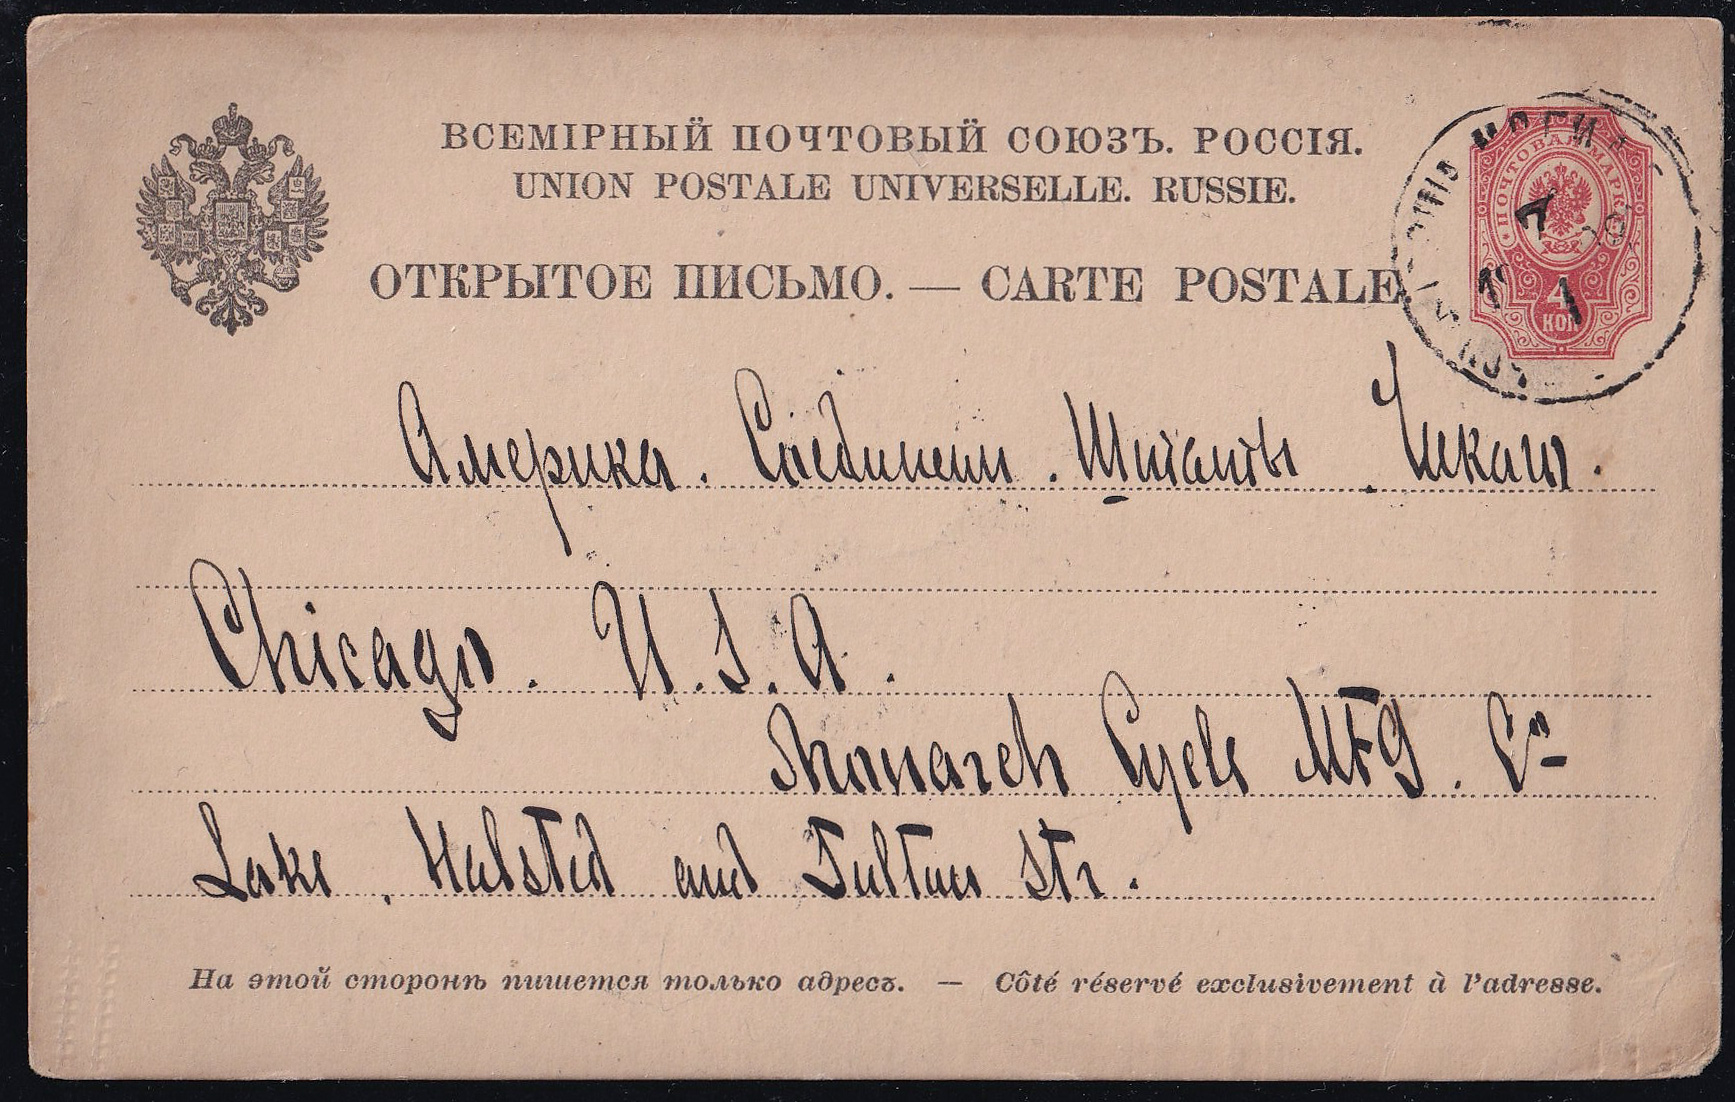 ВСЕМІРНЫЙ ПОЧТОВЫЙ СОЮЗЪ. РОССІЯ.
UNION POSTALE UNIVERSELLE. RUSSIE.
ОТКРЫТОЕ ПИСЬМО. — CARTE POSTALE
ПОЧТОВАЯ МАРКА
4
КОП
Америка. Соединени. Штаты Чикаго.
Chicago. U.S.A.
Monarch Cycle MFG. Co
Lake, Halsted and Fulton Str.
На этой сторонѣ пишется только адресъ. — Côté réservé exclusivement à l'adresse.